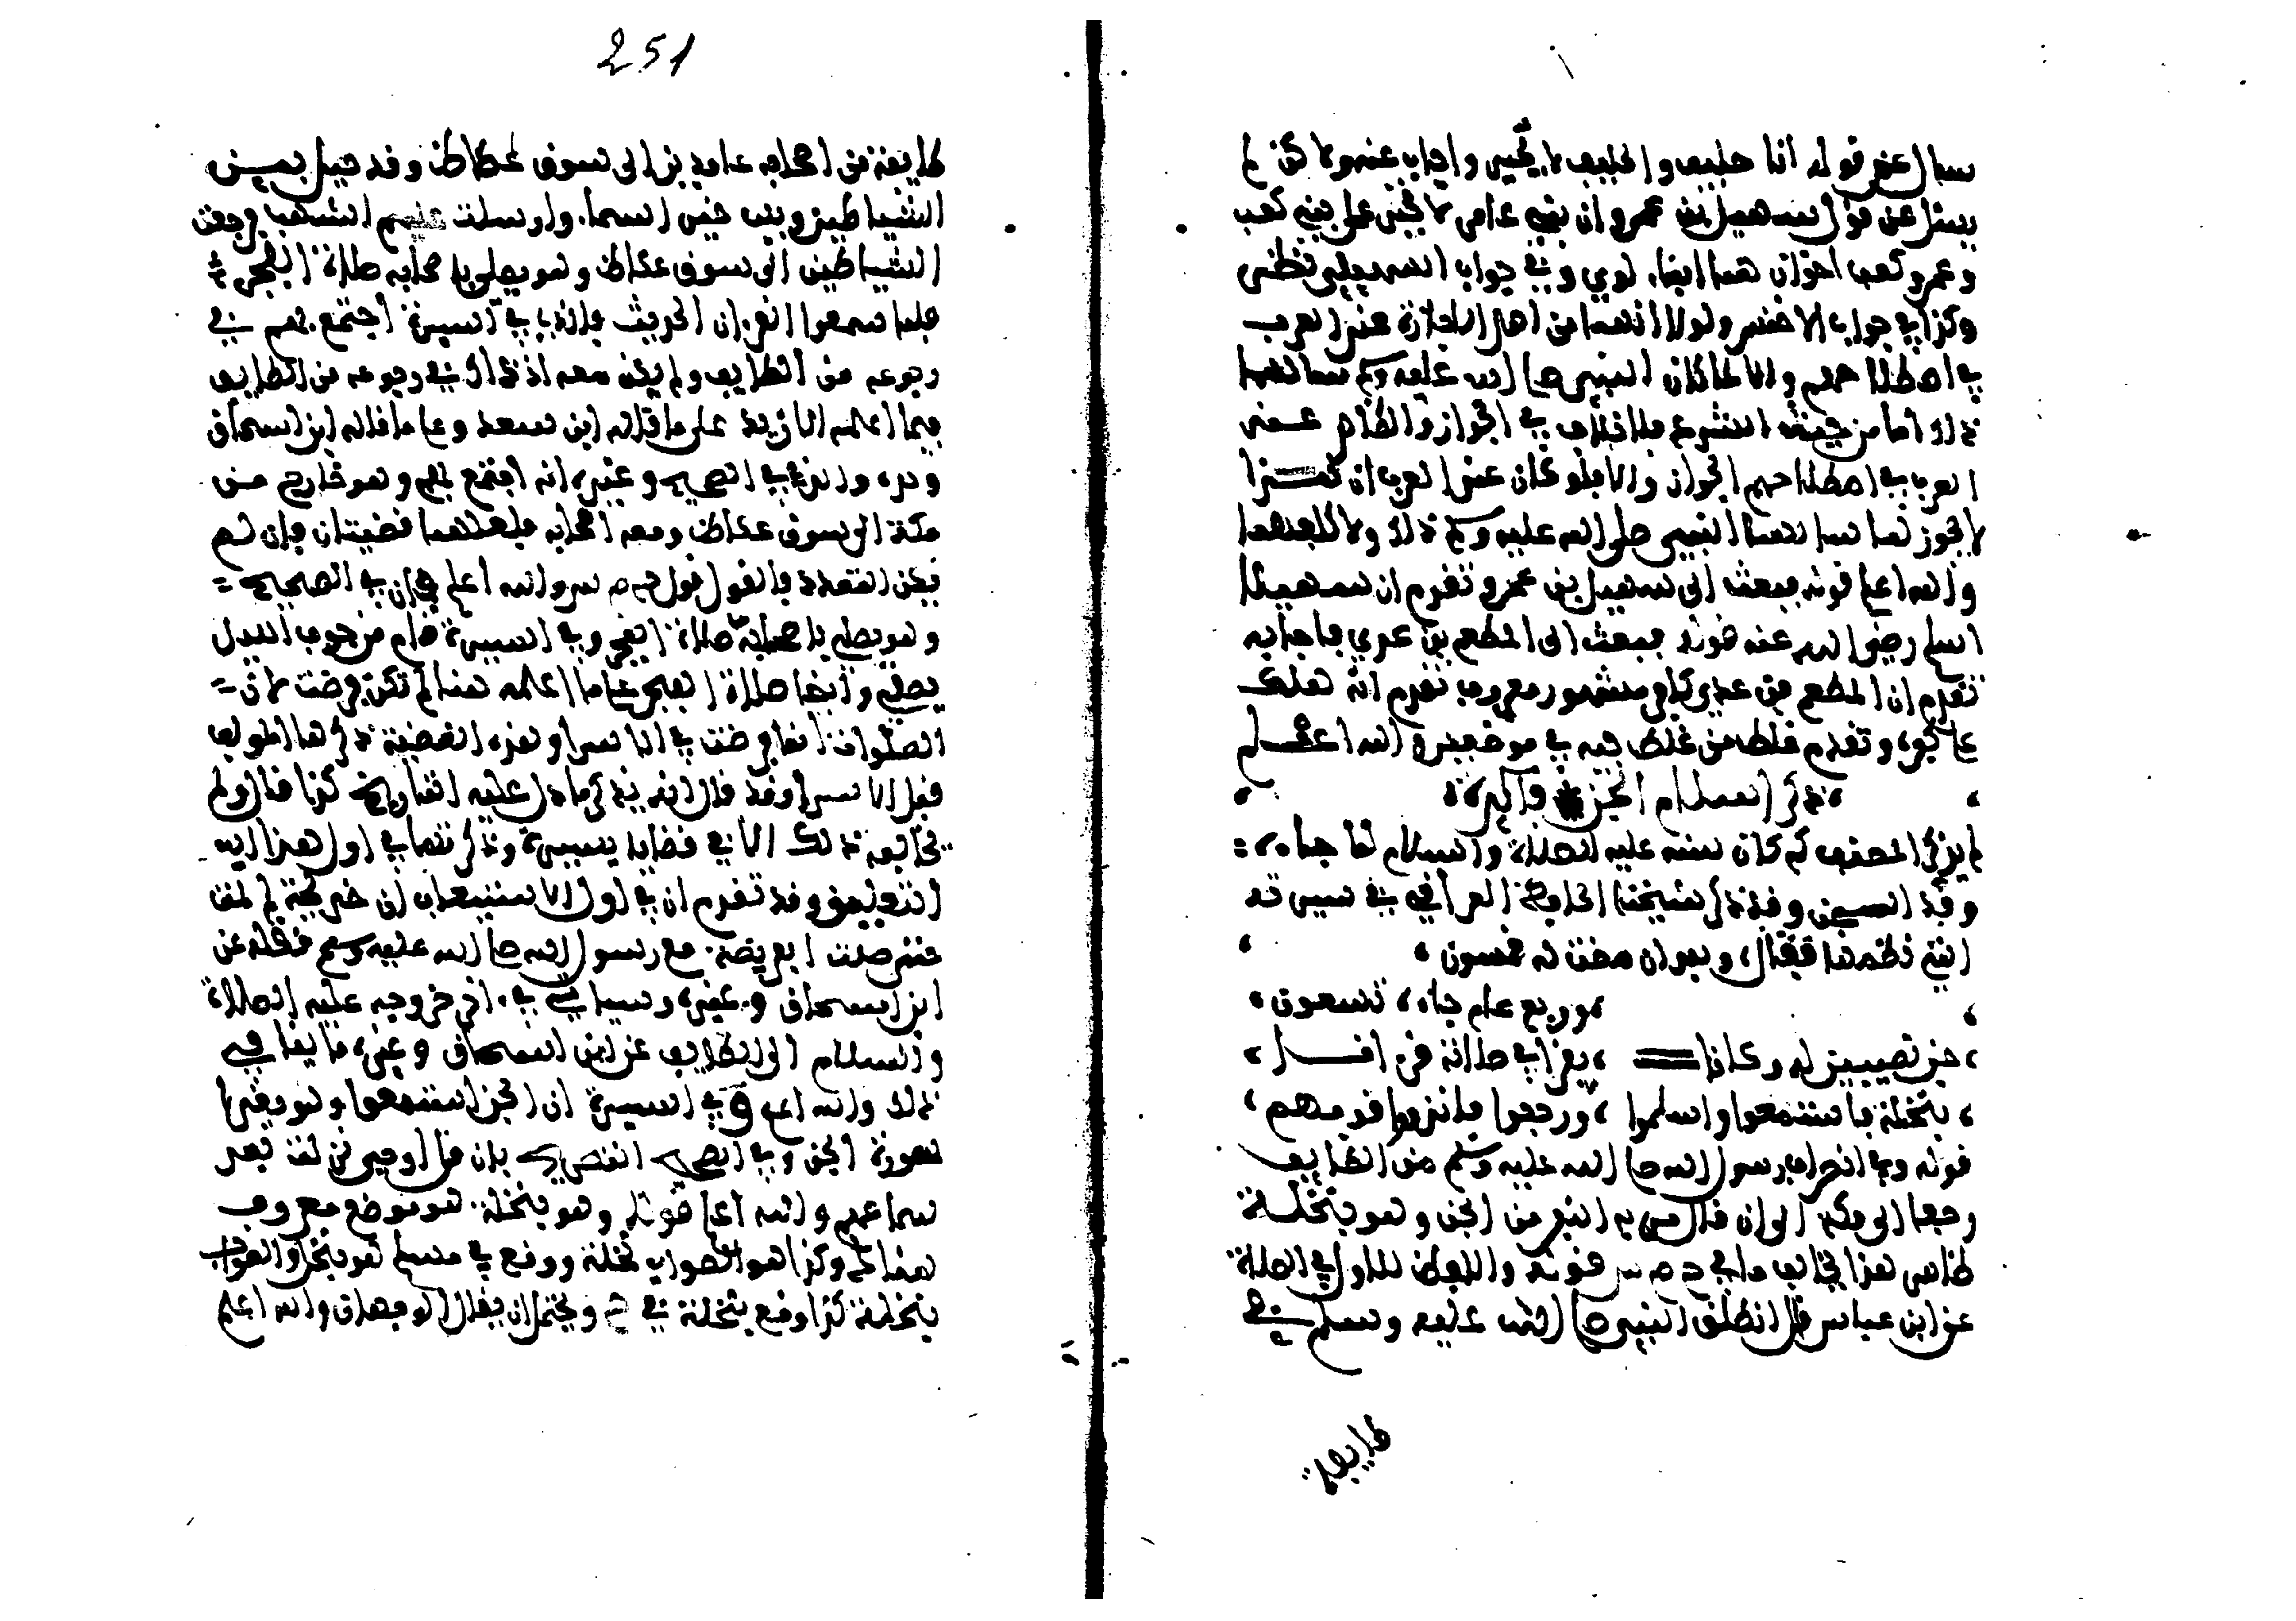 سال عن قوله انا حليف والحليف لا يجير واجاب عنه ولاكن لم
يسئل عن قول سهيل بن عمرو ان بني عامر لا تجير على بني كعب
وعمرو كعب اخوان هما ابنا لوي وفي جواب السهيلي نظر
وكذا في جواب الاخنس ولولا انهما من اهل الاجازة عند العرب
في اصطلاحهم والا لما كان النبي صلى الله عليه وسلم سالهما
ذلك اما من حيث الشرع فلا خلاف في الجواز والظاهر عند
العرب في اصطلاحهم الجواز والا فلو كان عند العرب ان هذا
لا يجوز لما سالهما النبي صلى الله عليه وسلم ذلك ولا
والله اعلم قوله فبعث الى سهيل بن عمرو تقدم ان سهيلا
اسلم رضي الله عنه قوله فبعث الى المطعم بن عدي فاجابه
تقدم ان المطعم بن عدي كافر مشهور معروف تقدم انه هلك
على كفره وتقدم غلط من غلط فيه في موضعين والله اعلم
ذكر اسلام الجن
لم يذكر المصنف كم كان سنه عليه الصلاة والسلام لما جاءه
وفد الجن وقد ذكر شيخنا الحافظ العراقي في سيرته
التي نظمها فقال وبعد ان مضت له خمسون
وربع عام جاءه تسعون
جن نصيبين له وكانا يقرا في صلاته قرانا
بنخلة فاستمعوا واسلموا ورجعوا فانذروا قومهم
قوله ولما انصرف رسول الله صلى الله عليه وسلم من الطايف
راجعا الى مكة الى ان قال مر به النفر من الجن وهو بنخلة
ظاهر هذا يخالف ما في خ م س قوله واللفظ للاول في الصلاة
عن ابن عباس قال انطلق النبي صلى الله عليه وسلم في
طايفة
251
طايفة من اصحابه عامدين الى سوق عكاظ وقد حيل بين
الشياطين وبين خبر السما وارسلت عليهم الشهب فرجعت
الشياطين الى سوق عكاظ وهو يصلي باصحابه صلاة الفجر
فلما سمعوا القران الحديث فالذي في السيرة اجتمع بهم في
رجوعه من الطايف ولم يكن معه اذ ذاك في رجوعه من الطايف
فيما اعلمه الا زيد على ما قاله ابن سعد وعلى ما قاله ابن اسحاق
وحده والذي في الصحيح وغيره انه اجتمع بهم وهو خارج من
مكة الى سوق عكاظ ومعه اصحابه فلعلهما قضيتان فان لم
يكن التعدد فالقول قول خ م س والله اعلم فان في الصحيح
وهو يصلي باصحابه صلاة الفجر وفي السيرة قام من جوف الليل
يصلي وايضا صلاة الفجر على ما اعلمه هنا لم تكن فرضت لان
الصلوات انما فرضت في الاسرا وهذه القضية ذكرها المولف
قبل الاسرا وقد قال انه يذكر ما دل عليه التاريخ كذا قال ولم
يخالف ذلك الا في قضايا يسيرة وذكر نصها في اول هذا
التعليق وقد تقدم ان في اول الاستيعاب ان خديجة لم تمت
حتى صلت الفريضة مع رسول الله صلى الله عليه وسلم فنقله عن
ابن اسحاق وغيره وسياتي في اخر خروجه عليه الصلاة
والسلام الى الطايف عن ابن اسحاق وغيره ما ينافي
ذلك والله اعلم وفي السيرة ان الجن استمعوا وهو يقرا
سورة الجن وفي الصحيح التصريح بان قل اوحي نزلت بعد
سماعهم والله اعلم قوله وهو بنخلة هو موضع معروف
هناك وكذا هو الصواب نخلة ووقع في مسلم هو بنخل والصواب
بنخلة كذا وقع بنخلة في خ ويحتمل ان يقال الوجهان والله اعلم